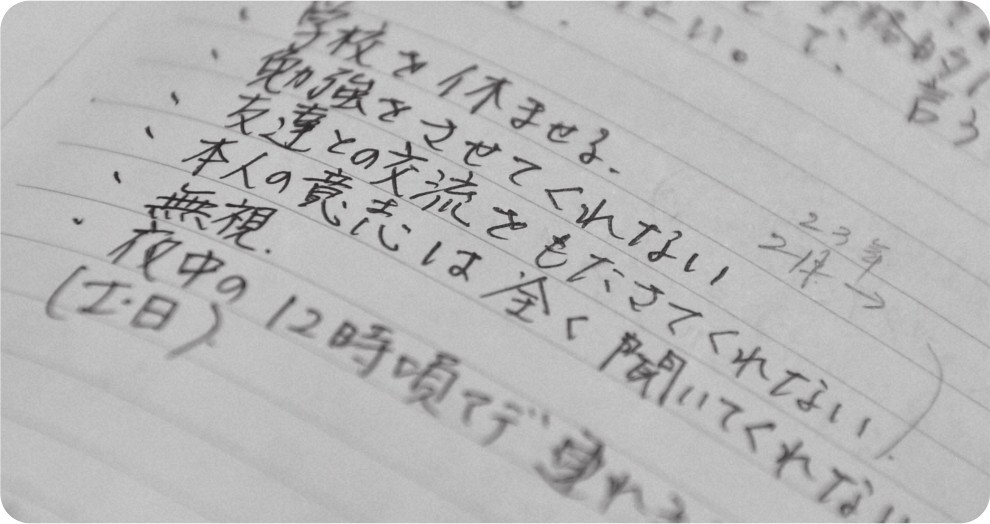 ない。 で、
言う
・学校を休ませる.
・勉強をさせてくれない
・友達との交流をもたさてくれない)
・本人の意志は全く聞いてくれない
・無視.
・夜中の12時頃まで 連れる
(土・日)
23年
2月→